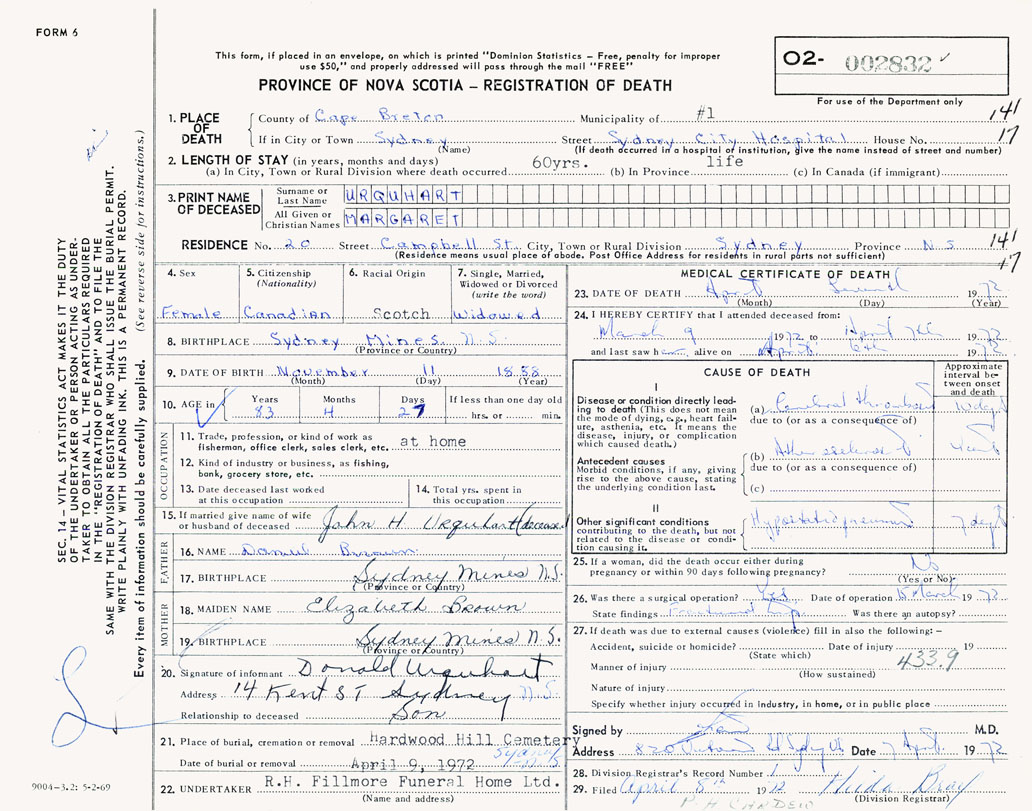 FORM 6
This form, if placed in an envelope, on which is printed "Dominion Statistics – Free, penalty for improper
use $50," and properly addressed will pass through the mail "FREE"
PROVINCE OF NOVA SCOTIA – REGISTRATION OF DEATH
O2- 002832
For use of the Department only
1. PLACE OF DEATH
County of Cape Breton Municipality of #1 141
If in City or Town Sydney Street Sydney City Hospital House No. 17
(Name) (If death occurred in a hospital or institution, give the name instead of street and number)
2. LENGTH OF STAY (in years, months and days)
(a) In City, Town or Rural Division where death occurred 60yrs. (b) In Province life (c) In Canada (if immigrant)
3. PRINT NAME OF DECEASED
Surname or Last Name URQUHART
All Given or Christian Names MARGARET
RESIDENCE No. 20 Street Campbell St. City, Town or Rural Division Sydney Province N S 141
(Residence means usual place of abode. Post Office Address for residents in rural parts not sufficient) 17
4. Sex Female
5. Citizenship (Nationality) Canadian
6. Racial Origin Scotch
7. Single, Married, Widowed or Divorced (write the word) Widowed
8. BIRTHPLACE Sydney Mines N.S.
(Province or Country)
9. DATE OF BIRTH November 11 1888
(Month) (Day) (Year)
10. AGE in Years 83 Months 4 Days 27 If less than one day old hrs. or min.
OCCUPATION
11. Trade, profession, or kind of work as fisherman, office clerk, sales clerk, etc. at home
12. Kind of industry or business, as fishing, bank, grocery store, etc.
13. Date deceased last worked at this occupation
14. Total yrs. spent in this occupation
15. If married give name of wife or husband of deceased John H. Urquhart (deceased)
FATHER
16. NAME Daniel Brown
17. BIRTHPLACE Sydney Mines N.S.
(Province or Country)
MOTHER
18. MAIDEN NAME Elizabeth Brown
19. BIRTHPLACE Sydney Mines N.S.
(Province or Country)
20. Signature of informant Donald Urquhart
Address 14 Kent ST Sydney N.S.
Relationship to deceased Son
21. Place of burial, cremation or removal Hardwood Hill Cemetery
Sydney N.S.
Date of burial or removal April 9, 1972
22. UNDERTAKER R.H. Fillmore Funeral Home Ltd.
(Name and address)
MEDICAL CERTIFICATE OF DEATH
23. DATE OF DEATH April 1972
(Month) (Day) (Year)
24. I HEREBY CERTIFY that I attended deceased from:
March 9 1972 to April 7th 1972
and last saw h alive on April 6th 1972
CAUSE OF DEATH
Approximate interval between onset and death
I
Disease or condition directly leading to death (This does not mean the mode of dying, e.g., heart failure, asthenia, etc. It means the disease, injury, or complication which caused death.)
(a) Cerebral thrombosis 10 days
due to (or as a consequence of)
Antecedent causes
Morbid conditions, if any, giving rise to the above cause, stating the underlying condition last.
(b)
due to (or as a consequence of)
(c)
II
Other significant conditions contributing to the death, but not related to the disease or condition causing it.
Hypostatic pneumonia 7 days
25. If a woman, did the death occur either during pregnancy or within 90 days following pregnancy? No
(Yes or No)
26. Was there a surgical operation? Yes Date of operation 15 March 1972
State findings Was there an autopsy?
27. If death was due to external causes (violence) fill in also the following: –
Accident, suicide or homicide? Date of injury 19
(State which)
Manner of injury 433.9
(How sustained)
Nature of injury
Specify whether injury occurred in industry, in home, or in public place
Signed by M.D.
Address Date 7 April 1972
28. Division Registrar's Record Number
29. Filed April 8th 1972 Hilda Bray
(Division Registrar)
SEC. 14 – VITAL STATISTICS ACT MAKES IT THE DUTY
OF THE UNDERTAKER OR PERSON ACTING AS UNDERTAKER
TO OBTAIN ALL THE PARTICULARS REQUIRED
IN THE "REGISTRATION OF DEATH" AND TO FILE THE
SAME WITH THE DIVISION REGISTRAR WHO SHALL ISSUE THE BURIAL PERMIT.
WRITE PLAINLY WITH UNFADING INK. THIS IS A PERMANENT RECORD.
Every item of information should be carefully supplied. (See reverse side for instructions.)
9004-3.2: 5-2-69